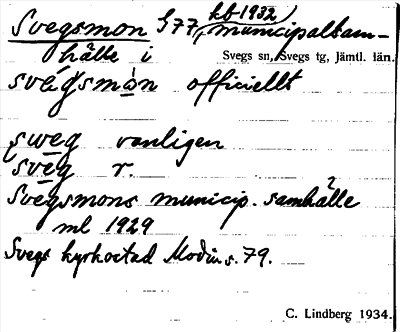 kb 1932
Svegsmon G77, municipalsam-
hälle i Svegs sn, Svegs tg, Jämtl. län.
svégsmòn officiellt
sweg vanligen
svēg r.
Svegsmons municip. samhälle
ml 1929
Svegs kyrkostad Modin s. 79.
C. Lindberg 1934.